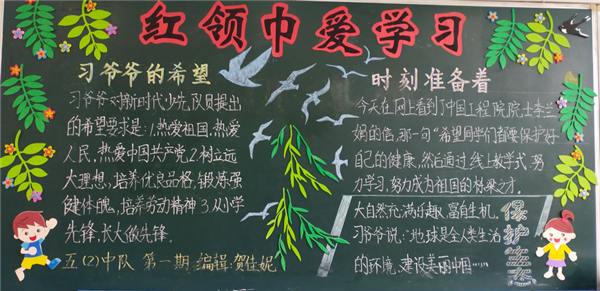 红领巾爱学习
习爷爷的希望
习爷爷对新时代少先队员提出
的希望要求是:1.热爱祖国,热爱
人民,热爱中国共产党2.树立远
大理想,培养优良品格,锻炼强
健体魄,培养劳动精神3.从小学
先锋,长大做先锋。
五(2)中队 第一期 编辑:贺佳妮
时刻准备着
今天在网上看到了中国工程院院士李兰
娟的信,那一句“希望同学们都要保护好
自己的健康,然后通过线上教学式,努
力学习,努力成为祖国的栋梁之才。
大自然充满乐趣,富有生机,
习爷爷说:“地球是全人类生活
的环境,建设美丽中国……
保护生态